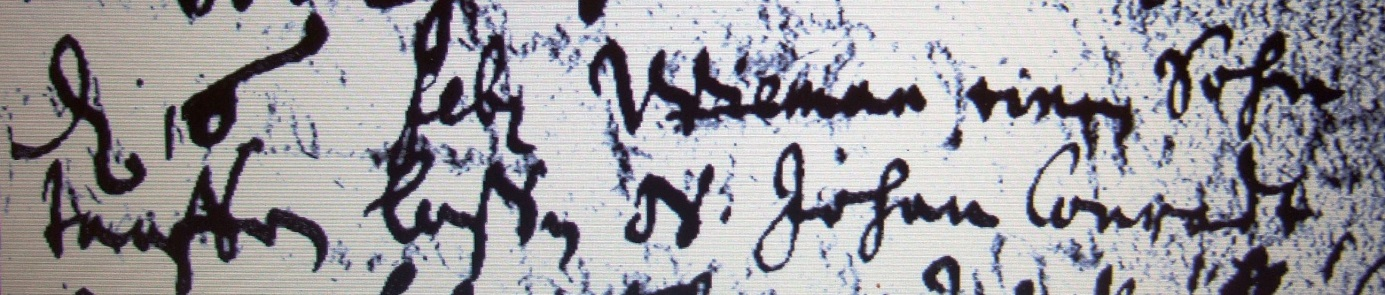 d. 16 febr Wieman einen Sohn
tauffen laßen N. Johan Conradt